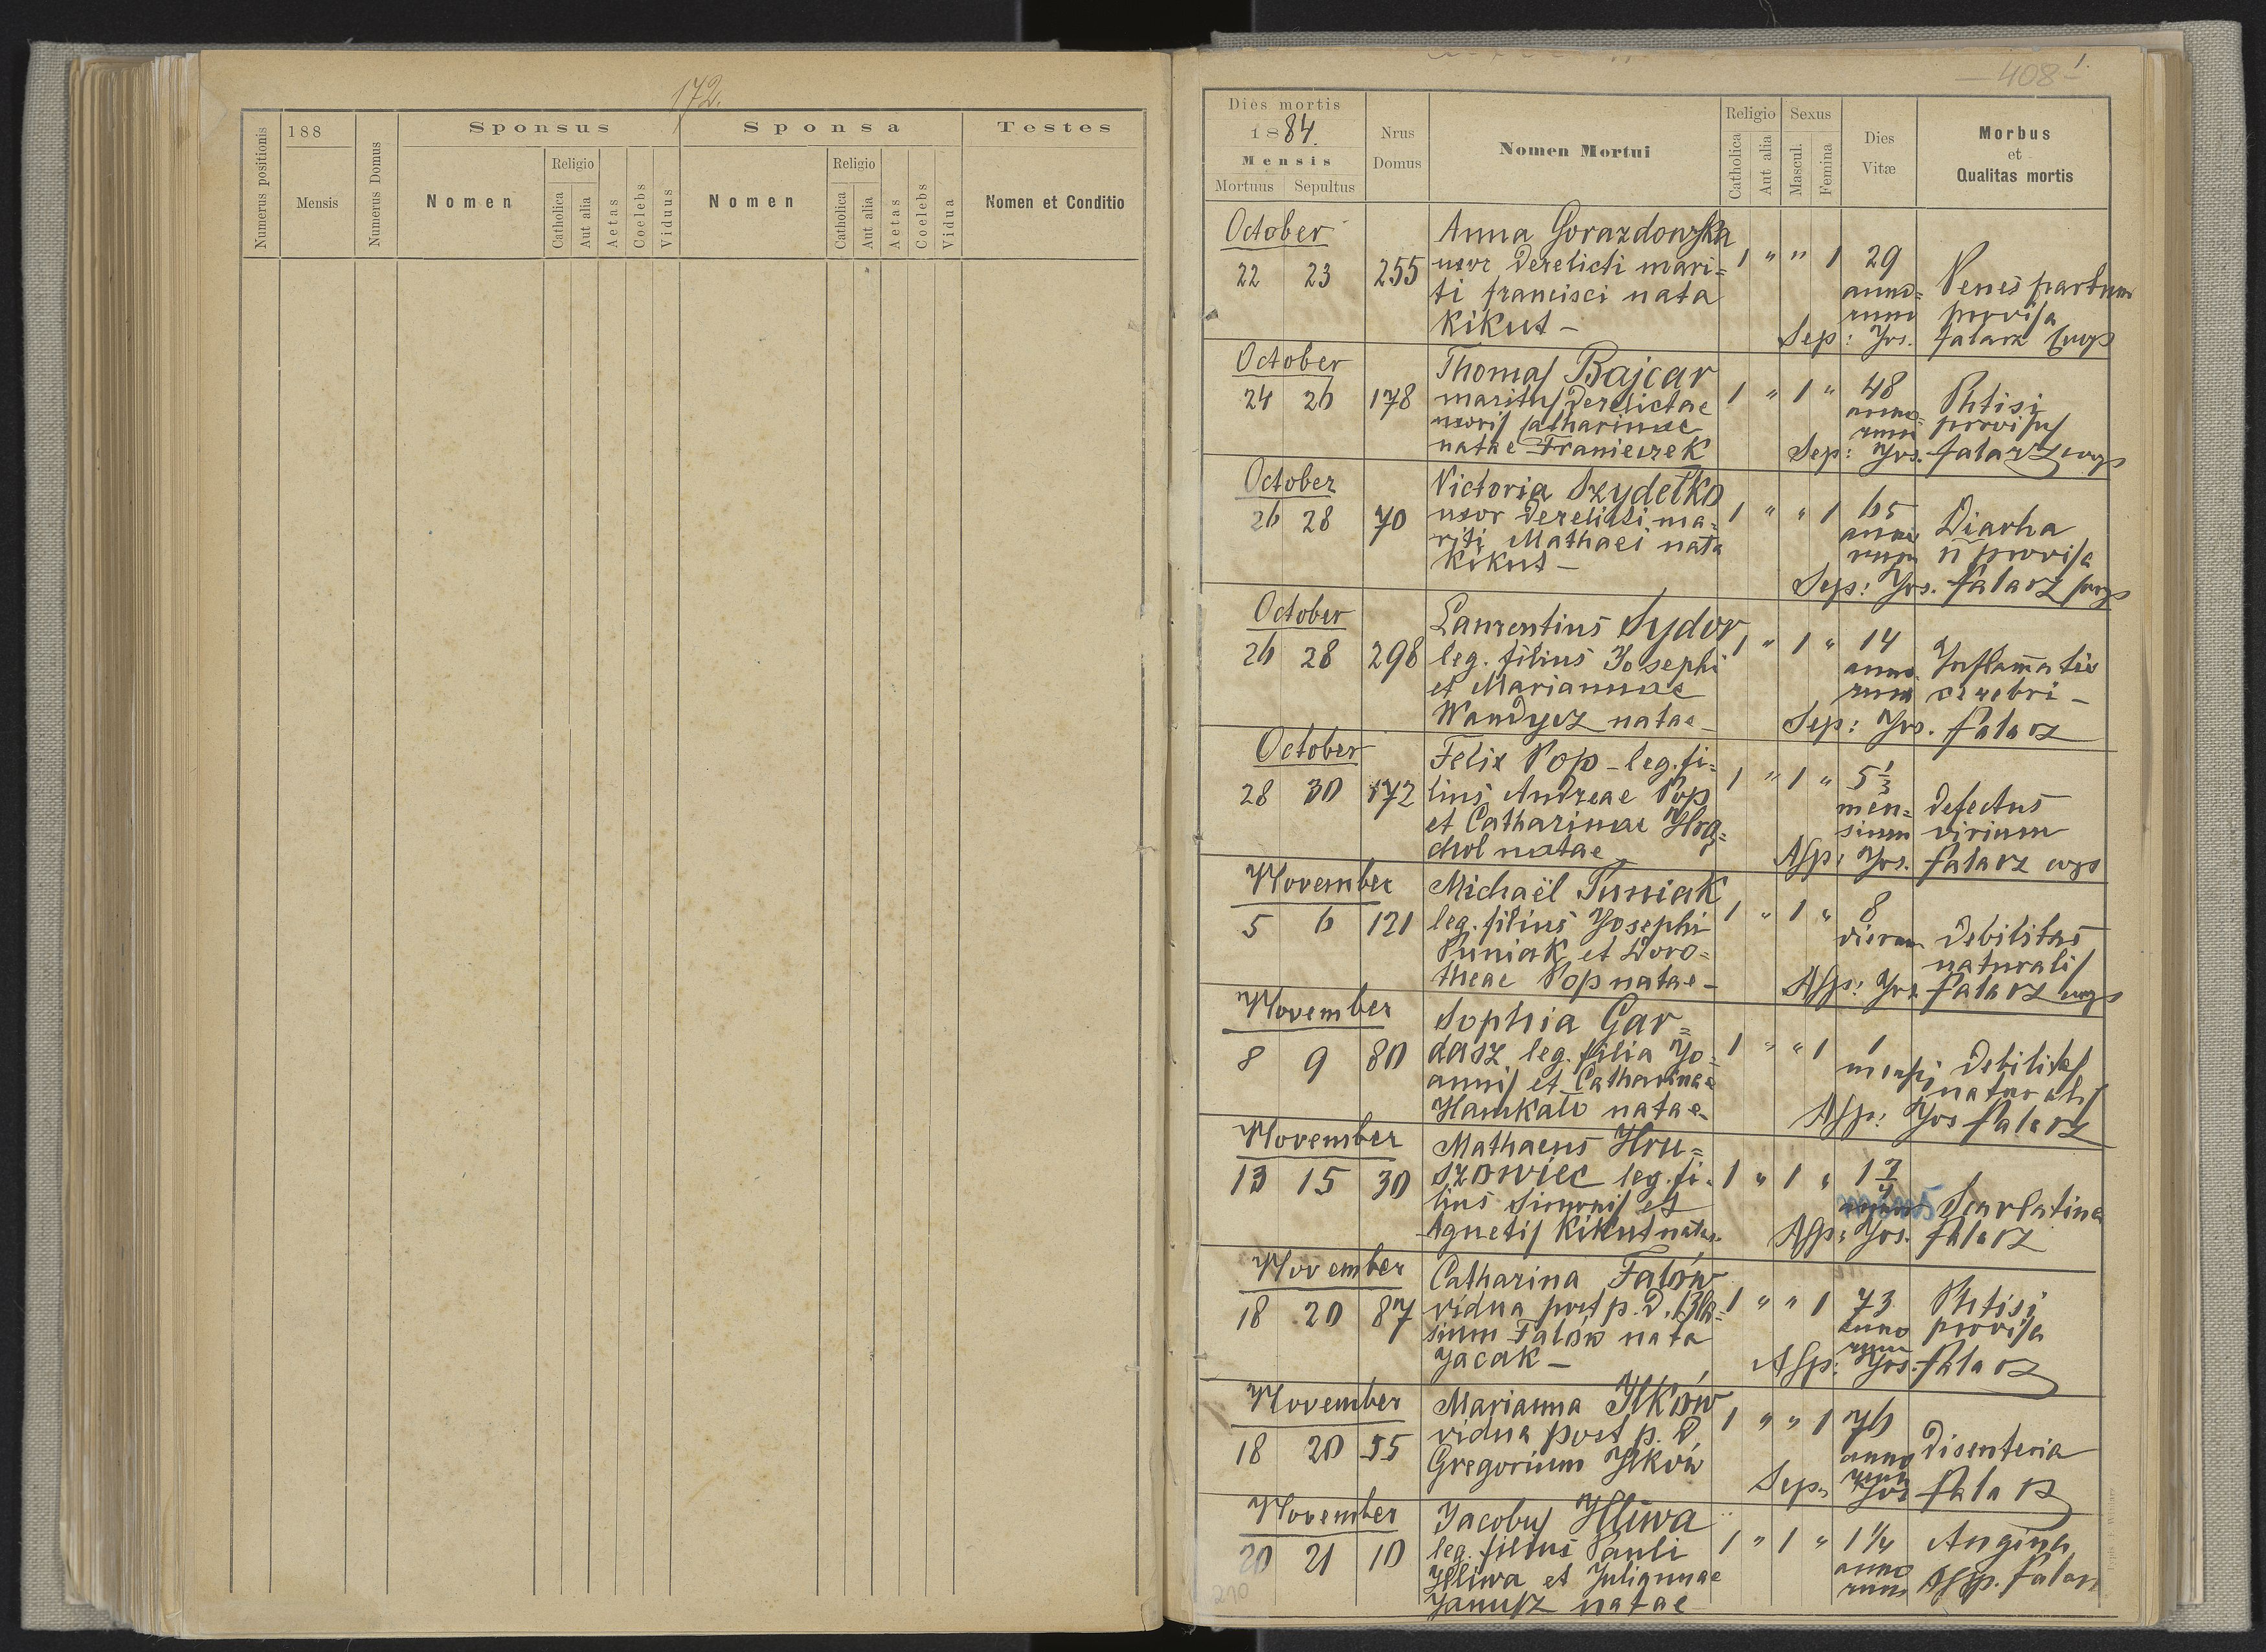 172.
188
Sponsus
Sponsa
Testes
Numerus positionis
Mensis
Numerus Domus
Nomen
Religio
Catholica
Aut alia
Aetas
Coelebs
Viduus
Nomen
Religio
Catholica
Aut alia
Aetas
Coelebs
Vidua
Nomen et Conditio
408
1.
Dies mortis
1884.
Mensis
Mortuus Sepultus
Nrus
Domus
Nomen Mortui
Religio
Catholica
Aut alia
Sexus
Mascul.
Femina
Dies
Vitæ
Morbus
et
Qualitas mortis
October
Anna Gorazdowska
22 23 255 uxor derelicti mari= 1 " " 1 29
ti francisci nata anno= Penes partum
Kikut - rum provisa
Sep: Jos. Falarz
October
Thomas Bajcar
24 26 178 maritus derelictae 1 " 1 " 48
uxoris Catharinae anno= Phtisi
natae Franieczek rum provisus
Sep: Jos. Falarz
October
Victoria Szydełko
26 28 70 uxor derelicti ma= 1 " " 1 65
riti Mathaei nata anno Diarha
Kikut - rum n provisa
Sep: Jos. Falarz
October
Laurentius Sydor
26 28 298 leg. filius Josephi 1 " 1 " 14
et Mariannae anno. Inflamatio
Wandycz natae - rum cerebri -
Sep: Jos. Falarz
October
Felix Pop - leg. fi=
28 30 172 lius Andreae Pop 1 " 1 " 5 1/3
et Catharinae Hra= men= defectus
chol natae sium virium
Asp: Jos. Falarz
November
Michaël Puniak
5 6 121 leg. filius Josephi 1 " 1 " 8
Puniak et Doro= dierum debilitas
theae Pop natae - naturalis
Asp: Jos. Falarz
November
Sophia Gar=
8 9 80 dasz leg. filia Jo= 1 " " 1 1
annis et Catharinae mensi debilitas
Hamkało natae - naturalis
Asp: Jos Falarz
November
Mathaeus Hru=
13 15 30 szowiec leg. fi. 1 " 1 "
lius Simonis et Scarlatina
Agnetis Kikut natae Asp: Jos. Falarz
November
Catharina Falów
18 20 87 vidua post p. d. Bla= 1 " " 1 73 Phtisi
sium Falów nata anno provisa
Jacak - rum
Asp: Jos. Falarz
November
Marianna Ilków
18 20 55 vidua post p. d. 1 " " 1 76
Gregorium Ilków anno disenteria
rum
Sep. Jos Falarz
November
Jacobus Hliwa
20 21 10 leg. filius Pauli 1 " 1 " 1 1/4 Angina
Hliwa et Juliannae anno
Janusz natae rum Asp. Falarz
210